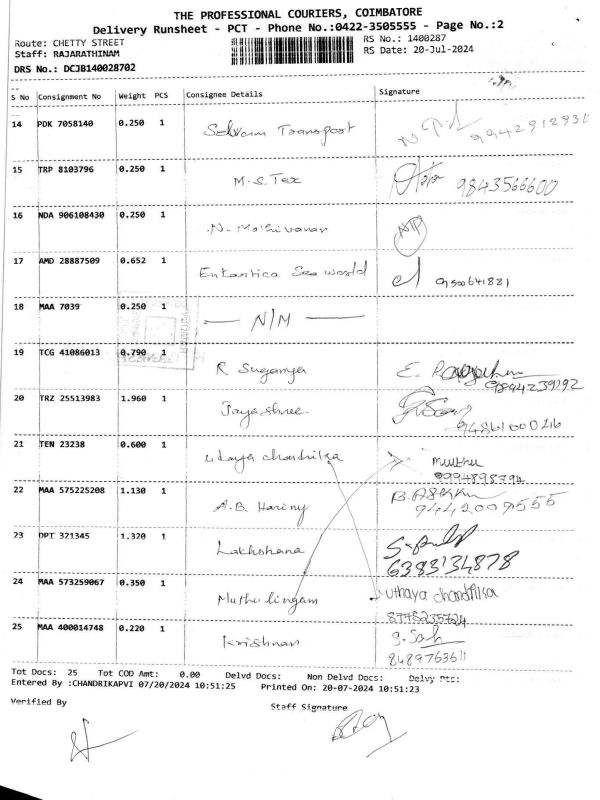 THE PROFESSIONAL COURIERS, COIMBATORE
Delivery Runsheet - PCT - Phone No.:0422-3505555 - Page No.:2
Route: CHETTY STREET RS No.: 1400287
Staff: RAJARATHINAM RS Date: 20-Jul-2024
DRS No.: DCJB140028702
S No Consignment No Weight PCS Consignee Details Signature
14 PDK 7058140 0.250 1 Selvam Transport
15 TRP 8103796 0.250 1 M.S. Tex 9843566600
16 NDA 906108430 0.250 1 N. Mathivanan
17 AMD 28887509 0.652 1 Enkantica Sea world 9500641881
18 MAA 7039 0.250 1 N/M
19 TCG 41086013 0.790 1 R Suganya
20 TRZ 25513983 1.960 1 Jayashree.
21 TEN 23238 0.600 1 Udaya chandrika muthu
9994898794
22 MAA 575225208 1.130 1 A.B. Hariny
9442009555
23 OPT 321345 1.320 1 Lakhshana
6383134878
24 MAA 573259067 0.350 1 Muthulingam
8778235724
25 MAA 400014748 0.220 1 Krishnan
8489763611
Tot Docs: 25 Tot COD Amt: 0.00 Delvd Docs: Non Delvd Docs: Delvy Pts:
Entered By :CHANDRIKAPVI 07/20/2024 10:51:25 Printed On: 20-07-2024 10:51:23
Verified By Staff Signature